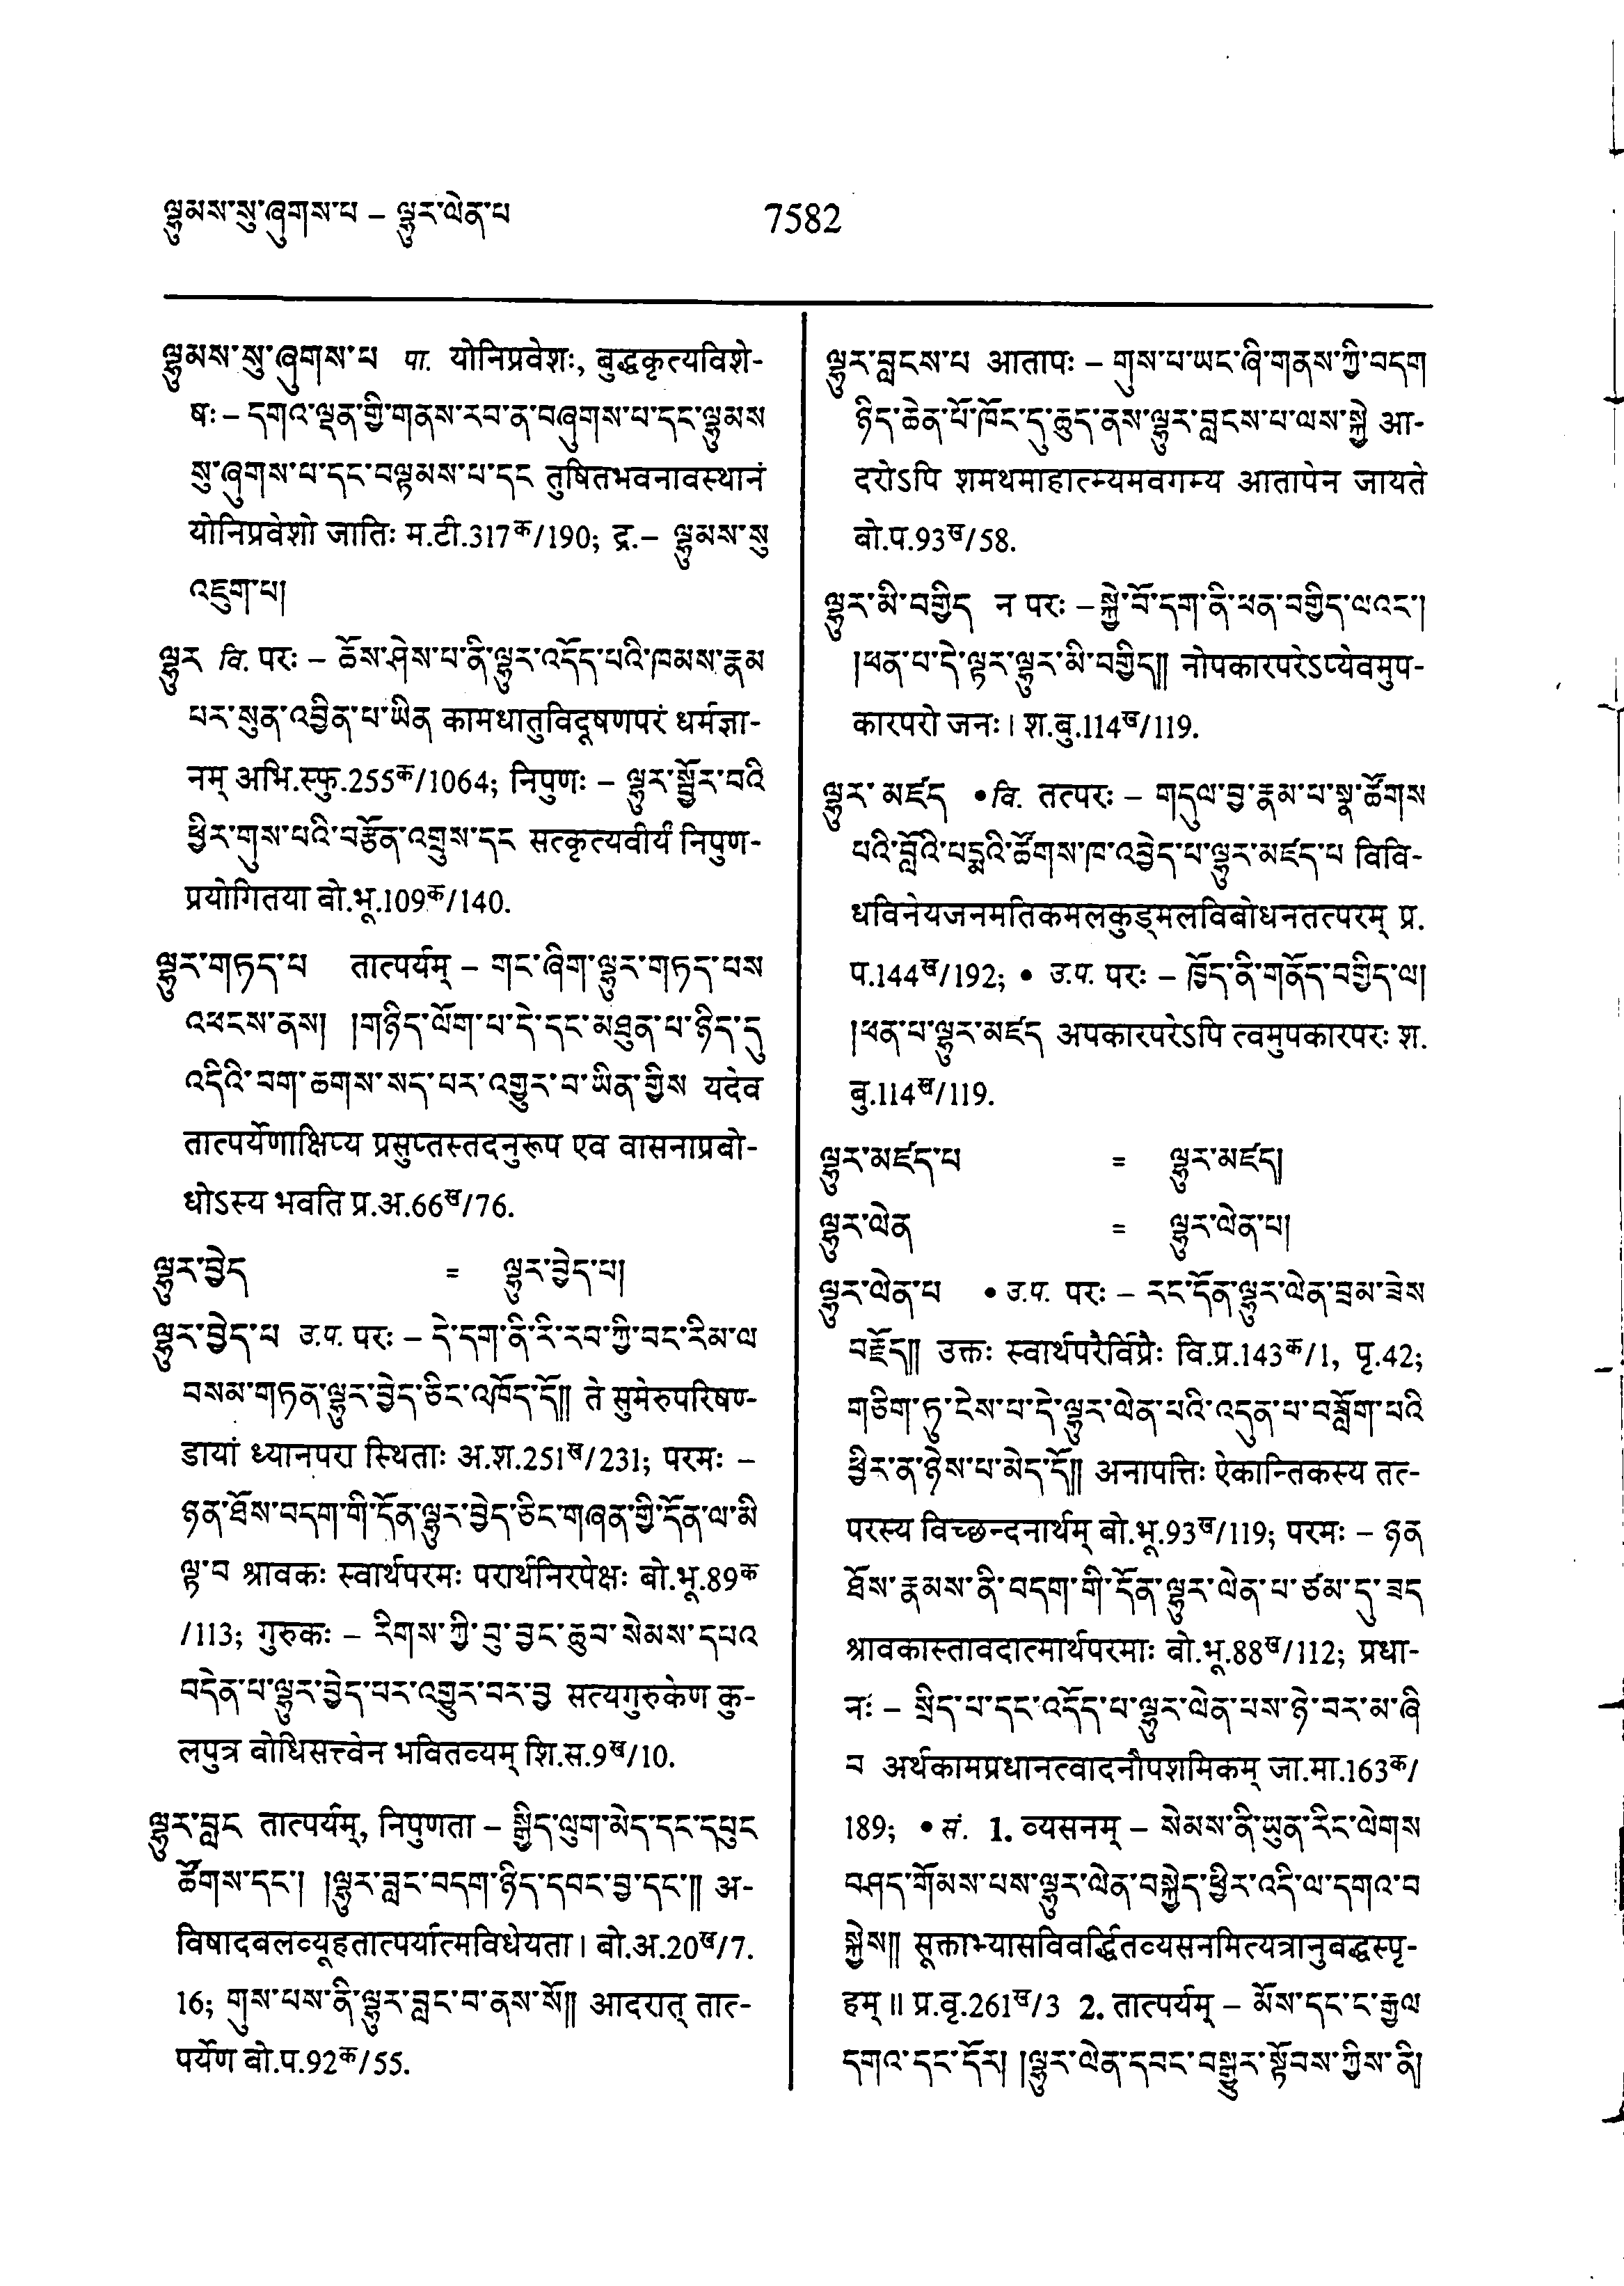 ལྷུམས་སུ་ཞུགས་པ – ལྷུར་ལེན་པ
7582
ལྷུམས་སུ་ཞུགས་པ पा. योनिप्रवेशः, बुद्धकृत्यविशे-
षः – དགའ་ལྡན་གྱི་གནས་རབ་ན་བཞུགས་པ་དང་ལྷུམས
སུ་ཞུགས་པ་དང་བལྟམས་པ་དང तुषितभवनावस्थानं
योनिप्रवेशो जातिः म.टी.317क/190; द्र.– ལྷུམས་སུ
འཇུག་པ།
ལྷུར वि. परः – ཆོས་ཤེས་པ་ནི་ལྷུར་འདོད་པའི་ཁམས་རྣམ
པར་སུན་འབྱིན་པ་ཡིན कामधातुविदूषणपरं धर्मज्ञा-
नम् अभि.स्फु.255क/1064; निपुणः – ལྷུར་སྦྱོར་བའི
ཕྱིར་གུས་པའི་བརྩོན་འགྲུས་དང सत्कृत्यवीर्यं निपुण-
प्रयोगितया बो.भू.109क/140.
ལྷུར་གཏད་པ तात्पर्यम् – གང་ཞིག་ལྷུར་གཏད་པས
འཕངས་ནས། །གཉིད་ལོག་པ་དེ་དང་མཐུན་པ་ཉིད་དུ
འདིའི་བག་ཆགས་སད་པར་འགྱུར་བ་ཡིན་གྱིས यदेव
तात्पर्येणाक्षिप्य प्रसुप्तस्तदनुरूप एव वासनाप्रबो-
धोऽस्य भवति प्र.अ.66ख/76.
ལྷུར་བྱེད = ལྷུར་བྱེད་པ།
ལྷུར་བྱེད་པ उ.प. परः – དེ་དག་ནི་རི་རབ་ཀྱི་བང་རིམ་ལ
བསམ་གཏན་ལྷུར་བྱེད་ཅིང་འཁོད་དོ།། ते सुमेरुपरिषण-
डायां ध्यानपरा स्थिताः अ.श.251ख/231; परमः –
ཉན་ཐོས་བདག་གི་དོན་ལྷུར་བྱེད་ཅིང་གཞན་གྱི་དོན་ལ་མི
ལྟ་བ श्रावकः स्वार्थपरमः परार्थनिरपेक्षः बो.भू.89क
/113; गुरुकः – རིགས་ཀྱི་བུ་བྱང་ཆུབ་སེམས་དཔའ
བདེན་པ་ལྷུར་བྱེད་པར་འགྱུར་བར་བྱ सत्यगुरुकेण कु-
लपुत्र बोधिसत्त्वेन भवितव्यम् शि.स.9ख/10.
ལྷུར་བླང तात्पर्यम्, निपुणता – སྒྱིད་ལུག་མེད་དང་དཔུང
ཚོགས་དང་། །ལྷུར་བླང་བདག་ཉིད་དབང་བྱ་དང་།། अ-
विषादबलव्यूहतात्पर्यात्मविधेयता। बो.अ.20ख/7.
16; གུས་པས་ནི་ལྷུར་བླང་བ་ནས་སོ།། आदरात् तात-
पर्येण बो.प.92क/55.
ལྷུར་བླངས་པ आतापः – གུས་པ་ཡང་ཞི་གནས་ཀྱི་བདག
ཉིད་ཆེན་པོ་ཁོང་དུ་ཆུད་ནས་ལྷུར་བླངས་པ་ལས་སྐྱེ आ-
दरोऽपि शमथमाहात्म्यमवगम्य आतापेन जायते
बो.प.93ख/58.
ལྷུར་མི་བགྱིད न परः – སྐྱེ་བོ་དག་ནི་ཕན་བགྱིད་ལའང་།
།ཕན་པ་དེ་ལྟར་ལྷུར་མི་བགྱིད།། नोपकारपरेऽप्येवमुप-
कारपरो जनः। श.बु.114ख/119.
ལྷུར་མཛད •वि. तत्परः – གདུལ་བྱ་རྣམ་པ་སྣ་ཚོགས
པའི་བློའི་པདྨའི་ཚོགས་ཁ་འབྱེད་པ་ལྷུར་མཛད་པ विवि-
धविनेयजनमतिकमलकुड्मलविबोधनतत्परम् प्र.
प.144ख/192; • उ.प. परः – ཁྱོད་ནི་གནོད་བགྱིད་ལ།
།ཕན་པ་ལྷུར་མཛད अपकारपरेऽपि त्वमुपकारपरः श.
बु.114ख/119.
ལྷུར་མཛད་པ = ལྷུར་མཛད།
ལྷུར་ལེན = ལྷུར་ལེན་པ།
ལྷུར་ལེན་པ • उ.प. परः – རང་དོན་ལྷུར་ལེན་བྲམ་ཟེས
བརྗོད།། उक्तः स्वार्थपरैर्विप्रैः वि.प्र.143क/1, पृ.42;
གཅིག་ཏུ་ངེས་པ་དེ་ལྷུར་ལེན་པའི་འདུན་པ་བཟློག་པའི
ཕྱིར་ན་ཉེས་པ་མེད་དོ།། अनापत्तिः ऐकान्तिकस्य तत-
परस्य विच्छन्दनार्थम् बो.भू.93ख/119; परमः – ཉན
ཐོས་རྣམས་ནི་བདག་གི་དོན་ལྷུར་ལེན་པ་ཙམ་དུ་ཟད
श्रावकास्तावदात्मार्थपरमाः बो.भू.88ख/112; प्रधा-
नः – སྲིད་པ་དང་འདོད་པ་ལྷུར་ལེན་པས་ཉེ་བར་མ་ཞི
བ अर्थकामप्रधानत्वादनौपशमिकम् जा.मा.163क/
189; • सं. 1. व्यसनम् – སེམས་ནི་ཡུན་རིང་ལེགས
བཤད་གོམས་པས་ལྷུར་ལེན་བསྐྱེད་ཕྱིར་འདི་ལ་དགའ་བ
སྐྱེས།། सूक्ताभ्यासविवर्द्धितव्यसनमित्यत्रानुबद्धस्पृ-
हम्॥ प्र.वृ.261ख/3 2. तात्पर्यम् – མོས་དང་ང་རྒྱལ
དགའ་དང་དོར། །ལྷུར་ལེན་དབང་བསྒྱུར་སྟོབས་ཀྱིས་ནི།